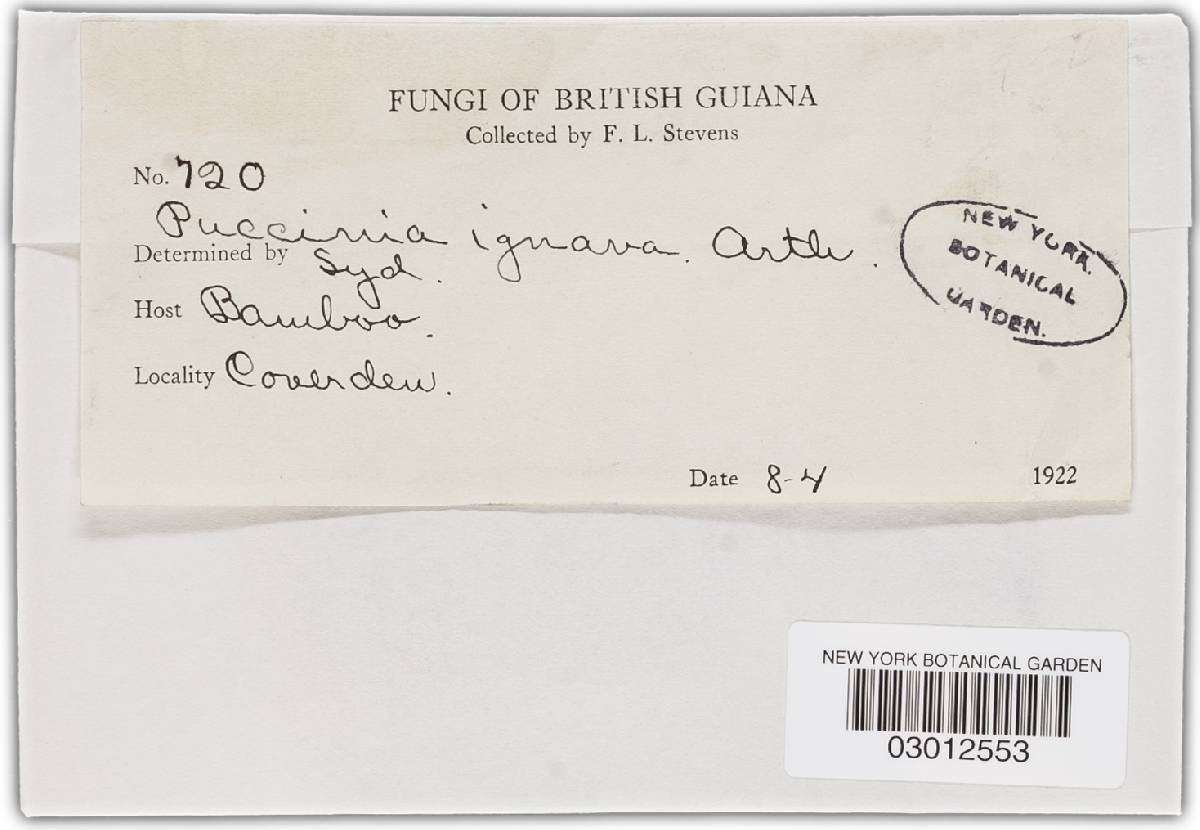 FUNGI OF BRITISH GUIANA
Collected by F. L. Stevens
No. 720
Puccinia ignava. Arth.
Determined by Syd.
Host Bamboo.
Locality Coverden.
Date 8-4 1922
NEW YORK
BOTANICAL
GARDEN.
NEW YORK BOTANICAL GARDEN
03012553